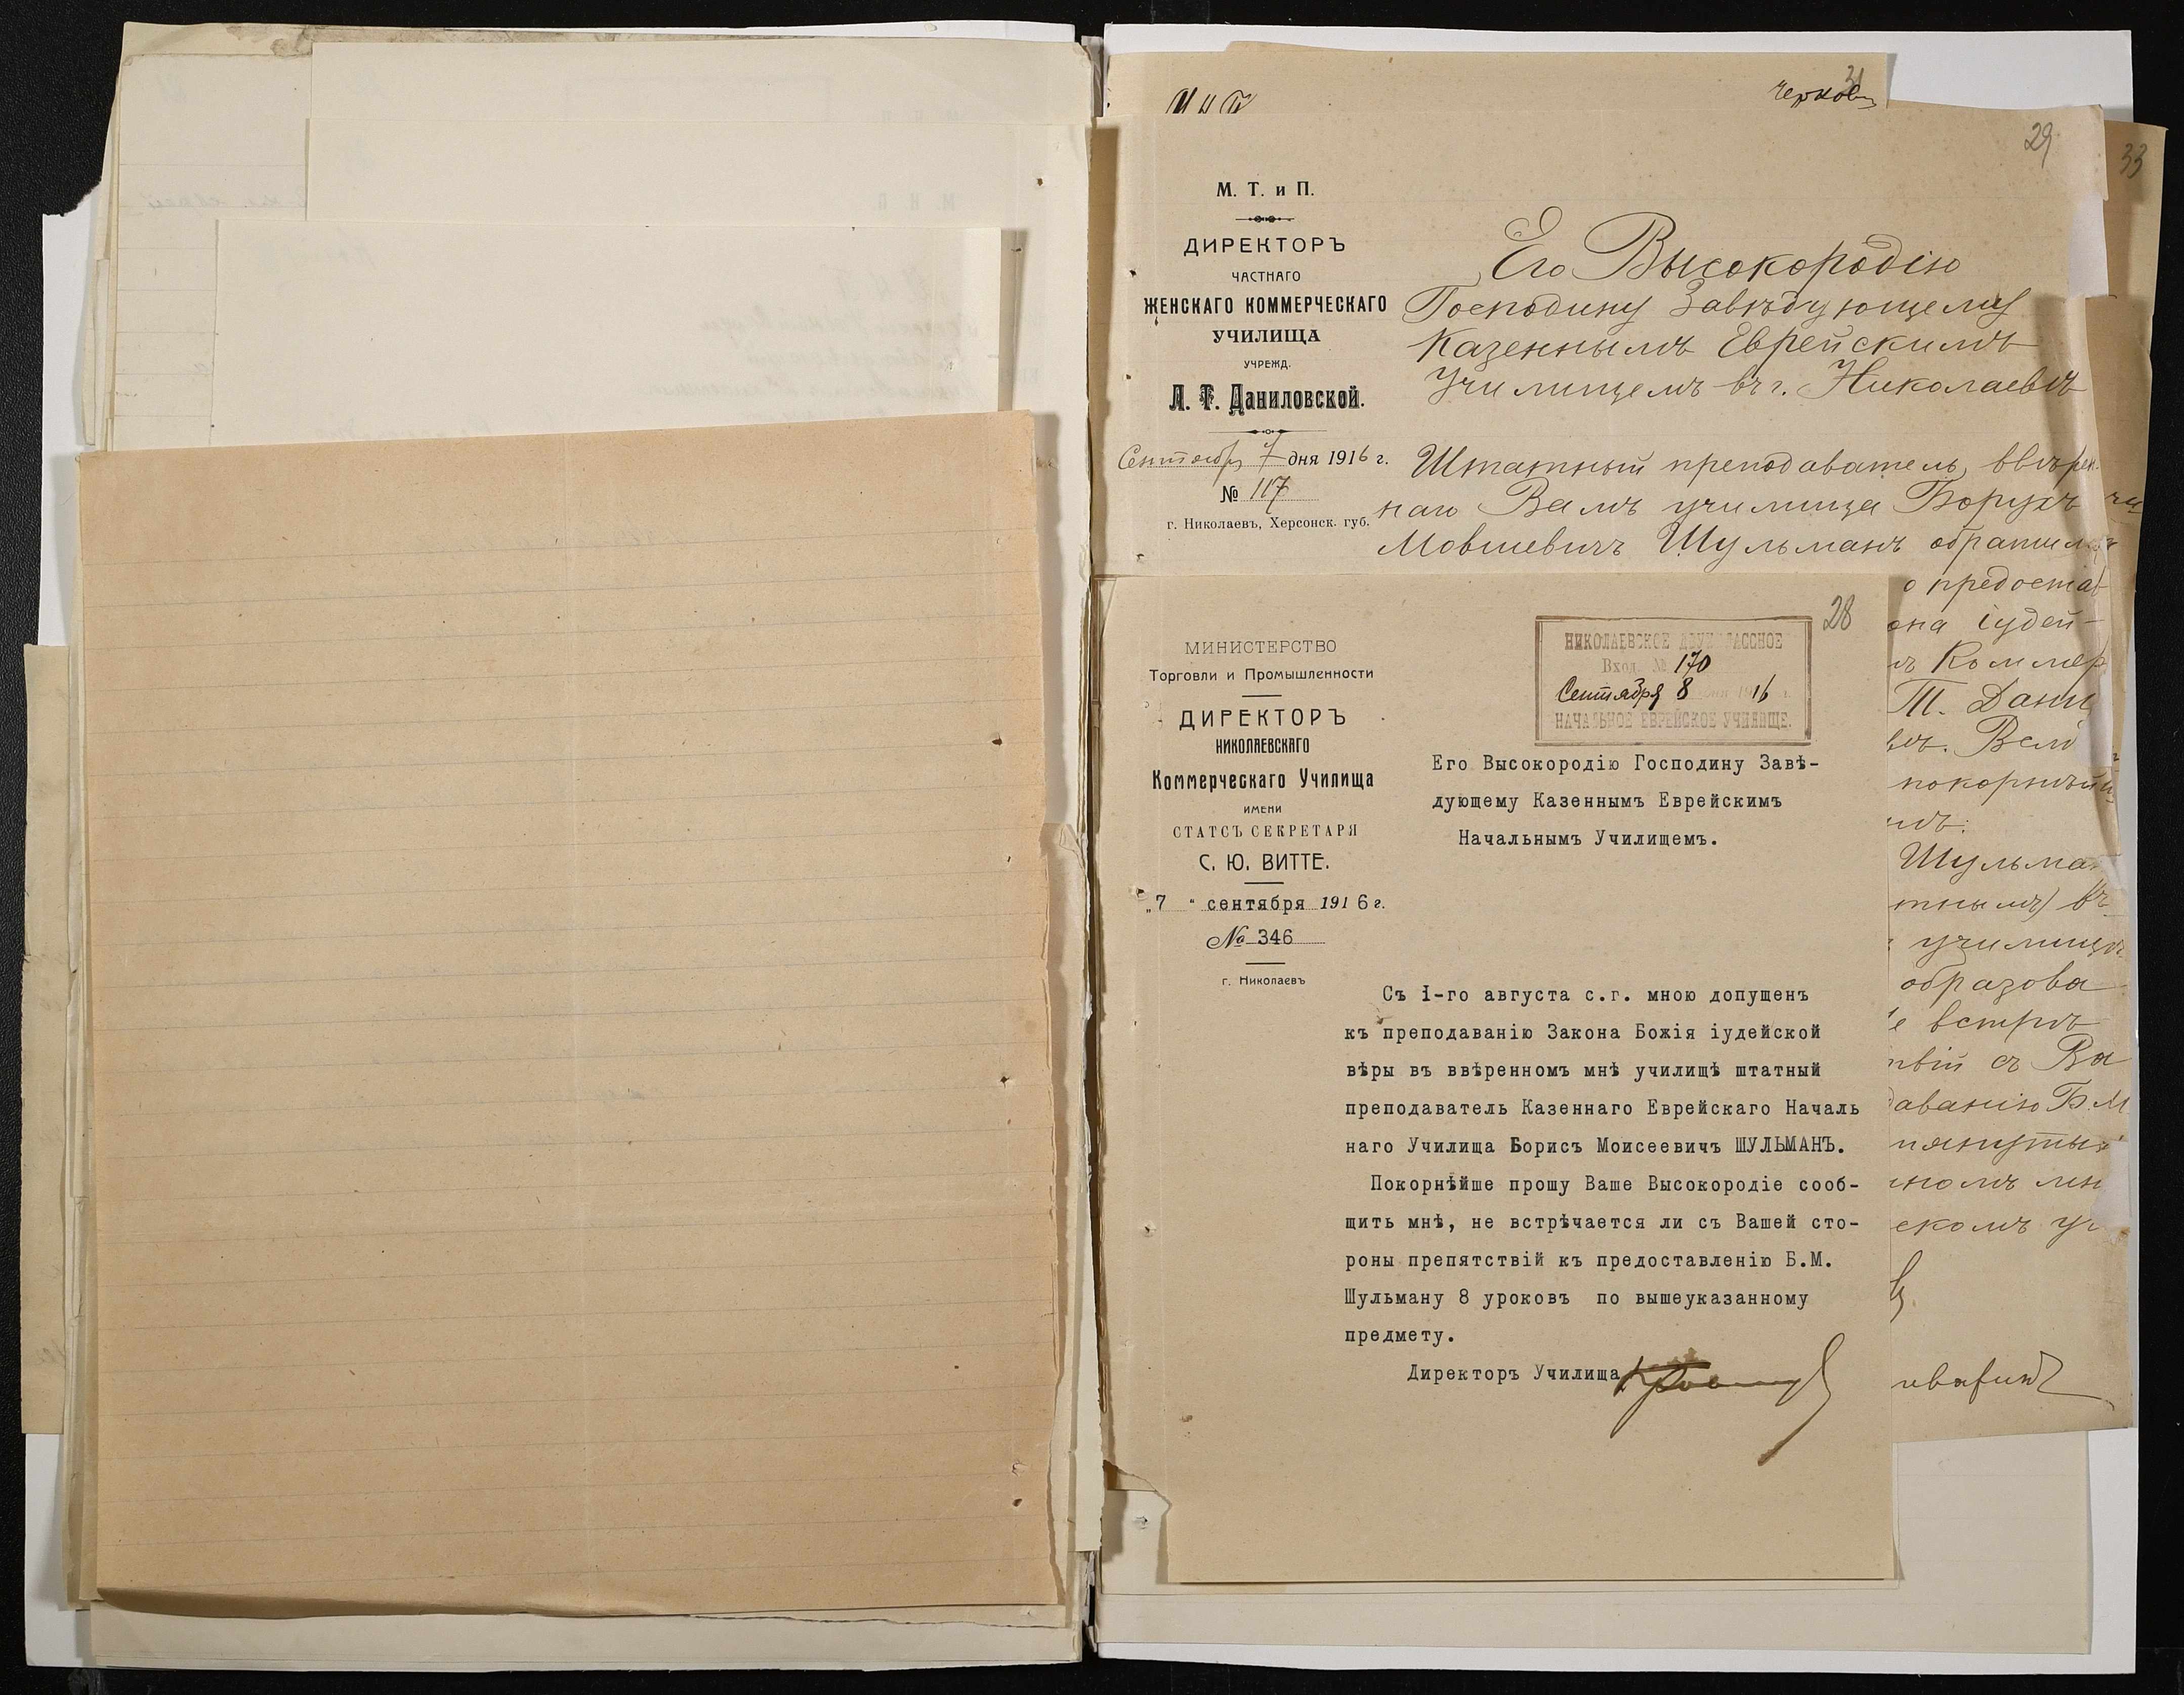 31
29
33
М. Т. и П.
ДИРЕКТОРЪ
ЧАСТНАГО
ЖЕНСКАГО КОММЕРЧЕСКАГО
УЧИЛИЩА
УЧРЕЖД.
Л. Т. Даниловской.
Сентября 7 дня 1916 г.
№ 117
г. Николаевъ, Херсонск. губ.
Его Высокородію
Господину Завѣдующему
Казеннымъ Еврейскимъ
Училищемъ въ г. Николаевѣ
Штатный преподаватель, ввѣрен-
наго Вамъ училища Борухъ
Мовшевичъ Шульманъ обратил
о предоста
она іудей-
Коммер
Т. Дани
Вам
покорнѣй
Шульма
училищ
образова
е встрѣ
твій съ Ва
даванію Б. М
28
НИКОЛАЕВСКОЕ ДВУХКЛАССНОЕ
Вход. № 170
Сентября 8 дня 1916 г.
НАЧАЛЬНОЕ ЕВРЕЙСКОЕ УЧИЛИЩЕ.
МИНИСТЕРСТВО
Торговли и Промышленности
ДИРЕКТОРЪ
НИКОЛАЕВСКАГО
Коммерческаго Училища
ИМЕНИ
СТАТСЪ СЕКРЕТАРЯ
С. Ю. ВИТТЕ.
„7 “ сентября 1916 г.
№ 346
г. Николаевъ
Его Высокородію Господину Завѣ-
дующему Казеннымъ Еврейскимъ
Начальнымъ Училищемъ.
Съ 1-го августа с.г. мною допущенъ
къ преподаванію Закона Божія іудейской
вѣры въ ввѣренномъ мнѣ училищѣ штатный
преподаватель Казеннаго Еврейскаго Началь
наго Училища Борисъ Моисеевичъ ШУЛЬМАНЪ.
Покорнѣйше прошу Ваше Высокородіе сооб-
щить мнѣ, не встрѣчается ли съ Вашей сто-
роны препятствій къ предоставленію Б.М.
Шульману 8 уроковъ по вышеуказанному
предмету.
Директоръ Училища